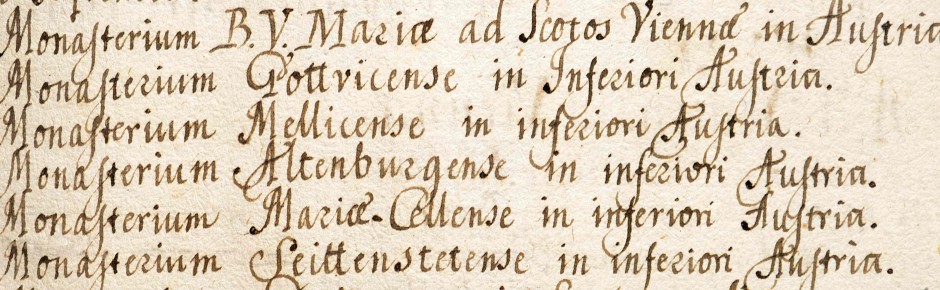 Monasterium B. V. Mariæ ad Scotos Viennæ in Austria
Monasterium Gottvicense in Inferiori Austria.
Monasterium Mellicense in inferiori Austria.
Monasterium Altenburgense in inferiori Austria.
Monasterium Mariæ-Cellense in inferiori Austria.
Monasterium Seittenstetense in inferiori Austria.